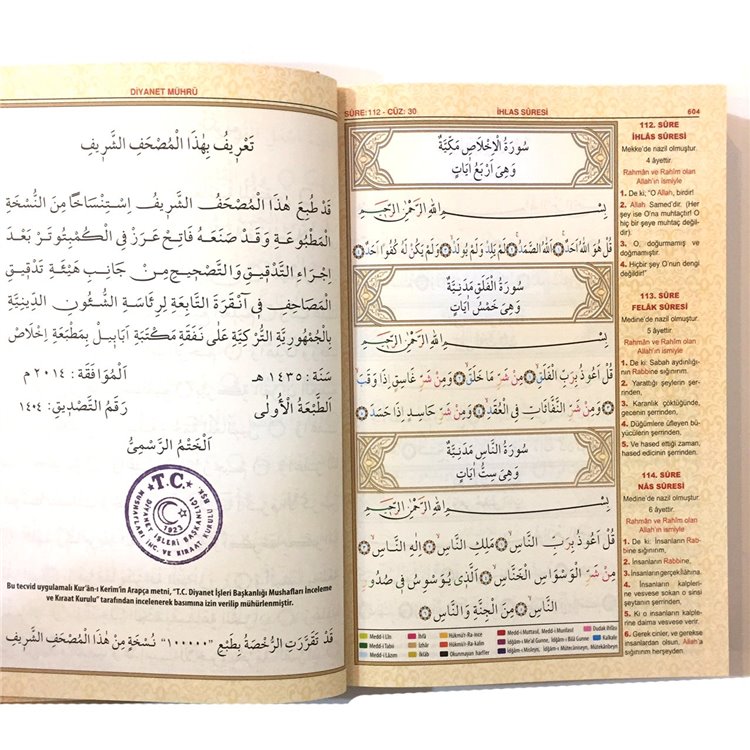 DİYANET MÜHRÜ
تَعْرِيفُ بِهٰذَا الْمُصْحَفِ الشَّرِيفِ
قَدْ طُبِعَ هٰذَا الْمُصْحَفُ الشَّرِيفُ اِسْتِنْسَاخًا مِنَ النُّسْخَةِ
الْمَطْبُوعَةِ وَقَدْ صَنَعَهُ فَاتِحْ عَرَزْ فِي الْكُمْبُتُوتَرْ بَعْدَ
اِجْرَاءِ التَّدْقِيقِ وَالتَّصْحِيحِ مِنْ جَانِبِ هَيْئَةِ تَدْقِيقِ
الْمَصَاحِفِ فِي اَنْقَرَةَ التَّابِعَةِ لِرِئَاسَةِ الشُّئُونِ الدِّينِيَّةِ
بِالْجُمْهُورِيَّةِ التُّرْكِيَّةِ عَلٰى نَفَقَةِ مَكْتَبَةِ اَبَابِيلْ بِمَطْبَعَةِ اِخْلَاصْ
سَنَة : ١٤٣٥ هـ الْمُوَافَقَة : ٢٠١٤ م
الطَّبْعَةُ الْأُولٰى رَقْمُ التَّصْدِيقِ: ١٤٠٤
اَلْخَتْمُ الرَّسْمِيُّ
T.C.
DİYANET İŞLERİ BAŞKANLIĞI
MUSHAFLARI İNC. VE KIRAAT KURULU BŞK.
1923
Bu tecvid uygulamalı Kur'ân-ı Kerim'in Arapça metni, "T.C. Diyanet İşleri Başkanlığı Mushafları İnceleme
ve Kıraat Kurulu" tarafından incelenerek basımına izin verilip mühürlenmiştir.
قَدْ تَقَرَّرَتِ الرُّخْصَةُ بِطَبْعِ "١٠٠٠٠٠" نُسْخَةٍ مِنْ هٰذَا الْمُصْحَفِ الشَّرِيفِ
SÛRE:112 - CÜZ: 30
İHLAS SÛRESİ
604
سُورَةُ الْاِخْلَاصِ مَكِّيَّةٌ
وَهِيَ اَرْبَعُ اٰيَاتٍ
بِسْمِ اللهِ الرَّحْمٰنِ الرَّحِيمِ
قُلْ هُوَ اللهُ اَحَدٌ ١ اَللهُ الصَّمَدُ ٢ لَمْ يَلِدْ وَلَمْ يُولَدْ ٣ وَلَمْ يَكُنْ لَهُ كُفُوًا اَحَدٌ ٤
سُورَةُ الْفَلَقِ مَدَنِيَّةٌ
وَهِيَ خَمْسُ اٰيَاتٍ
بِسْمِ اللهِ الرَّحْمٰنِ الرَّحِيمِ
قُلْ اَعُوذُ بِرَبِّ الْفَلَقِ ١ مِنْ شَرِّ مَا خَلَقَ ٢ وَمِنْ شَرِّ غَاسِقٍ اِذَا وَقَبَ
٣ وَمِنْ شَرِّ النَّفَّاثَاتِ فِي الْعُقَدِ ٤ وَمِنْ شَرِّ حَاسِدٍ اِذَا حَسَدَ ٥
سُورَةُ النَّاسِ مَدَنِيَّةٌ
وَهِيَ سِتُّ اٰيَاتٍ
بِسْمِ اللهِ الرَّحْمٰنِ الرَّحِيمِ
قُلْ اَعُوذُ بِرَبِّ النَّاسِ ١ مَلِكِ النَّاسِ ٢ اِلٰهِ النَّاسِ
٣ مِنْ شَرِّ الْوَسْوَاسِ الْخَنَّاسِ ٤ اَلَّذِي يُوَسْوِسُ فِي صُدُورِ
النَّاسِ ٥ مِنَ الْجِنَّةِ وَالنَّاسِ ٦
Medd-i Lîn İhfâ Hükmü'r-Ra-ince Medd-i Muttasıl, Medd-i Munfasıl Dudak İhfâsı
Medd-i Tabii İzhâr Hükmü'r-Ra-kalın İdğâm-ı Me'al Gunne, İdğâm-ı Bilâ Gunne Kalkale
Medd-i Lâzım İklâb Okunmayan harfler İdğâm-ı Misleyn, İdğâm-ı Mütecâniseyn, Mütekâribeyn
112. SÛRE
İHLÂS SÛRESİ
Mekke'de nazil olmuştur.
4 âyettir.
Rahmân ve Rahîm olan
Allah'ın ismiyle
1. De ki; "O Allah, birdir!
2. Allah Samed'dir. (Her
şey ise O'na muhtaçtır! O
hiç bir şeye muhtaç değil-
dir!)
3. O, doğurmamış ve
doğmamıştır.
4. Hiçbir şey O'nun dengi
değildir!"
113. SÛRE
FELÂK SÛRESİ
Medine'de nazil olmuştur.
5 âyettir.
Rahmân ve Rahîm olan
Allah'ın ismiyle
1. De ki: Sabah aydınlığı-
nın Rabbine sığınırım.
2. Yarattığı şeylerin şer-
rinden,
3. Karanlık çöktüğünde,
gecenin şerrinden,
4. Düğümlere üfleyen bü-
yücülerin şerrinden,
5. Ve hased ettiği zaman,
hased edicinin şerrinden.
114. SÛRE
NÂS SÛRESİ
Medine'de nazil olmuştur.
6 âyettir.
Rahmân ve Rahîm olan
Allah'ın ismiyle
1. De ki: İnsanların Rab-
bine sığınırım,
2. İnsanların Rabbine,
3. İnsanların gerçek İlâhına.
4. İnsanların kalpleri-
ne vesvese sokan o sinsi
şeytanın şerrinden,
5. Ki o insanların kalple-
rine daima vesvese verir.
6. Gerek cinler, ve gerekse
insanlardan olsun, Allah'a
sığınırım herşeyden.